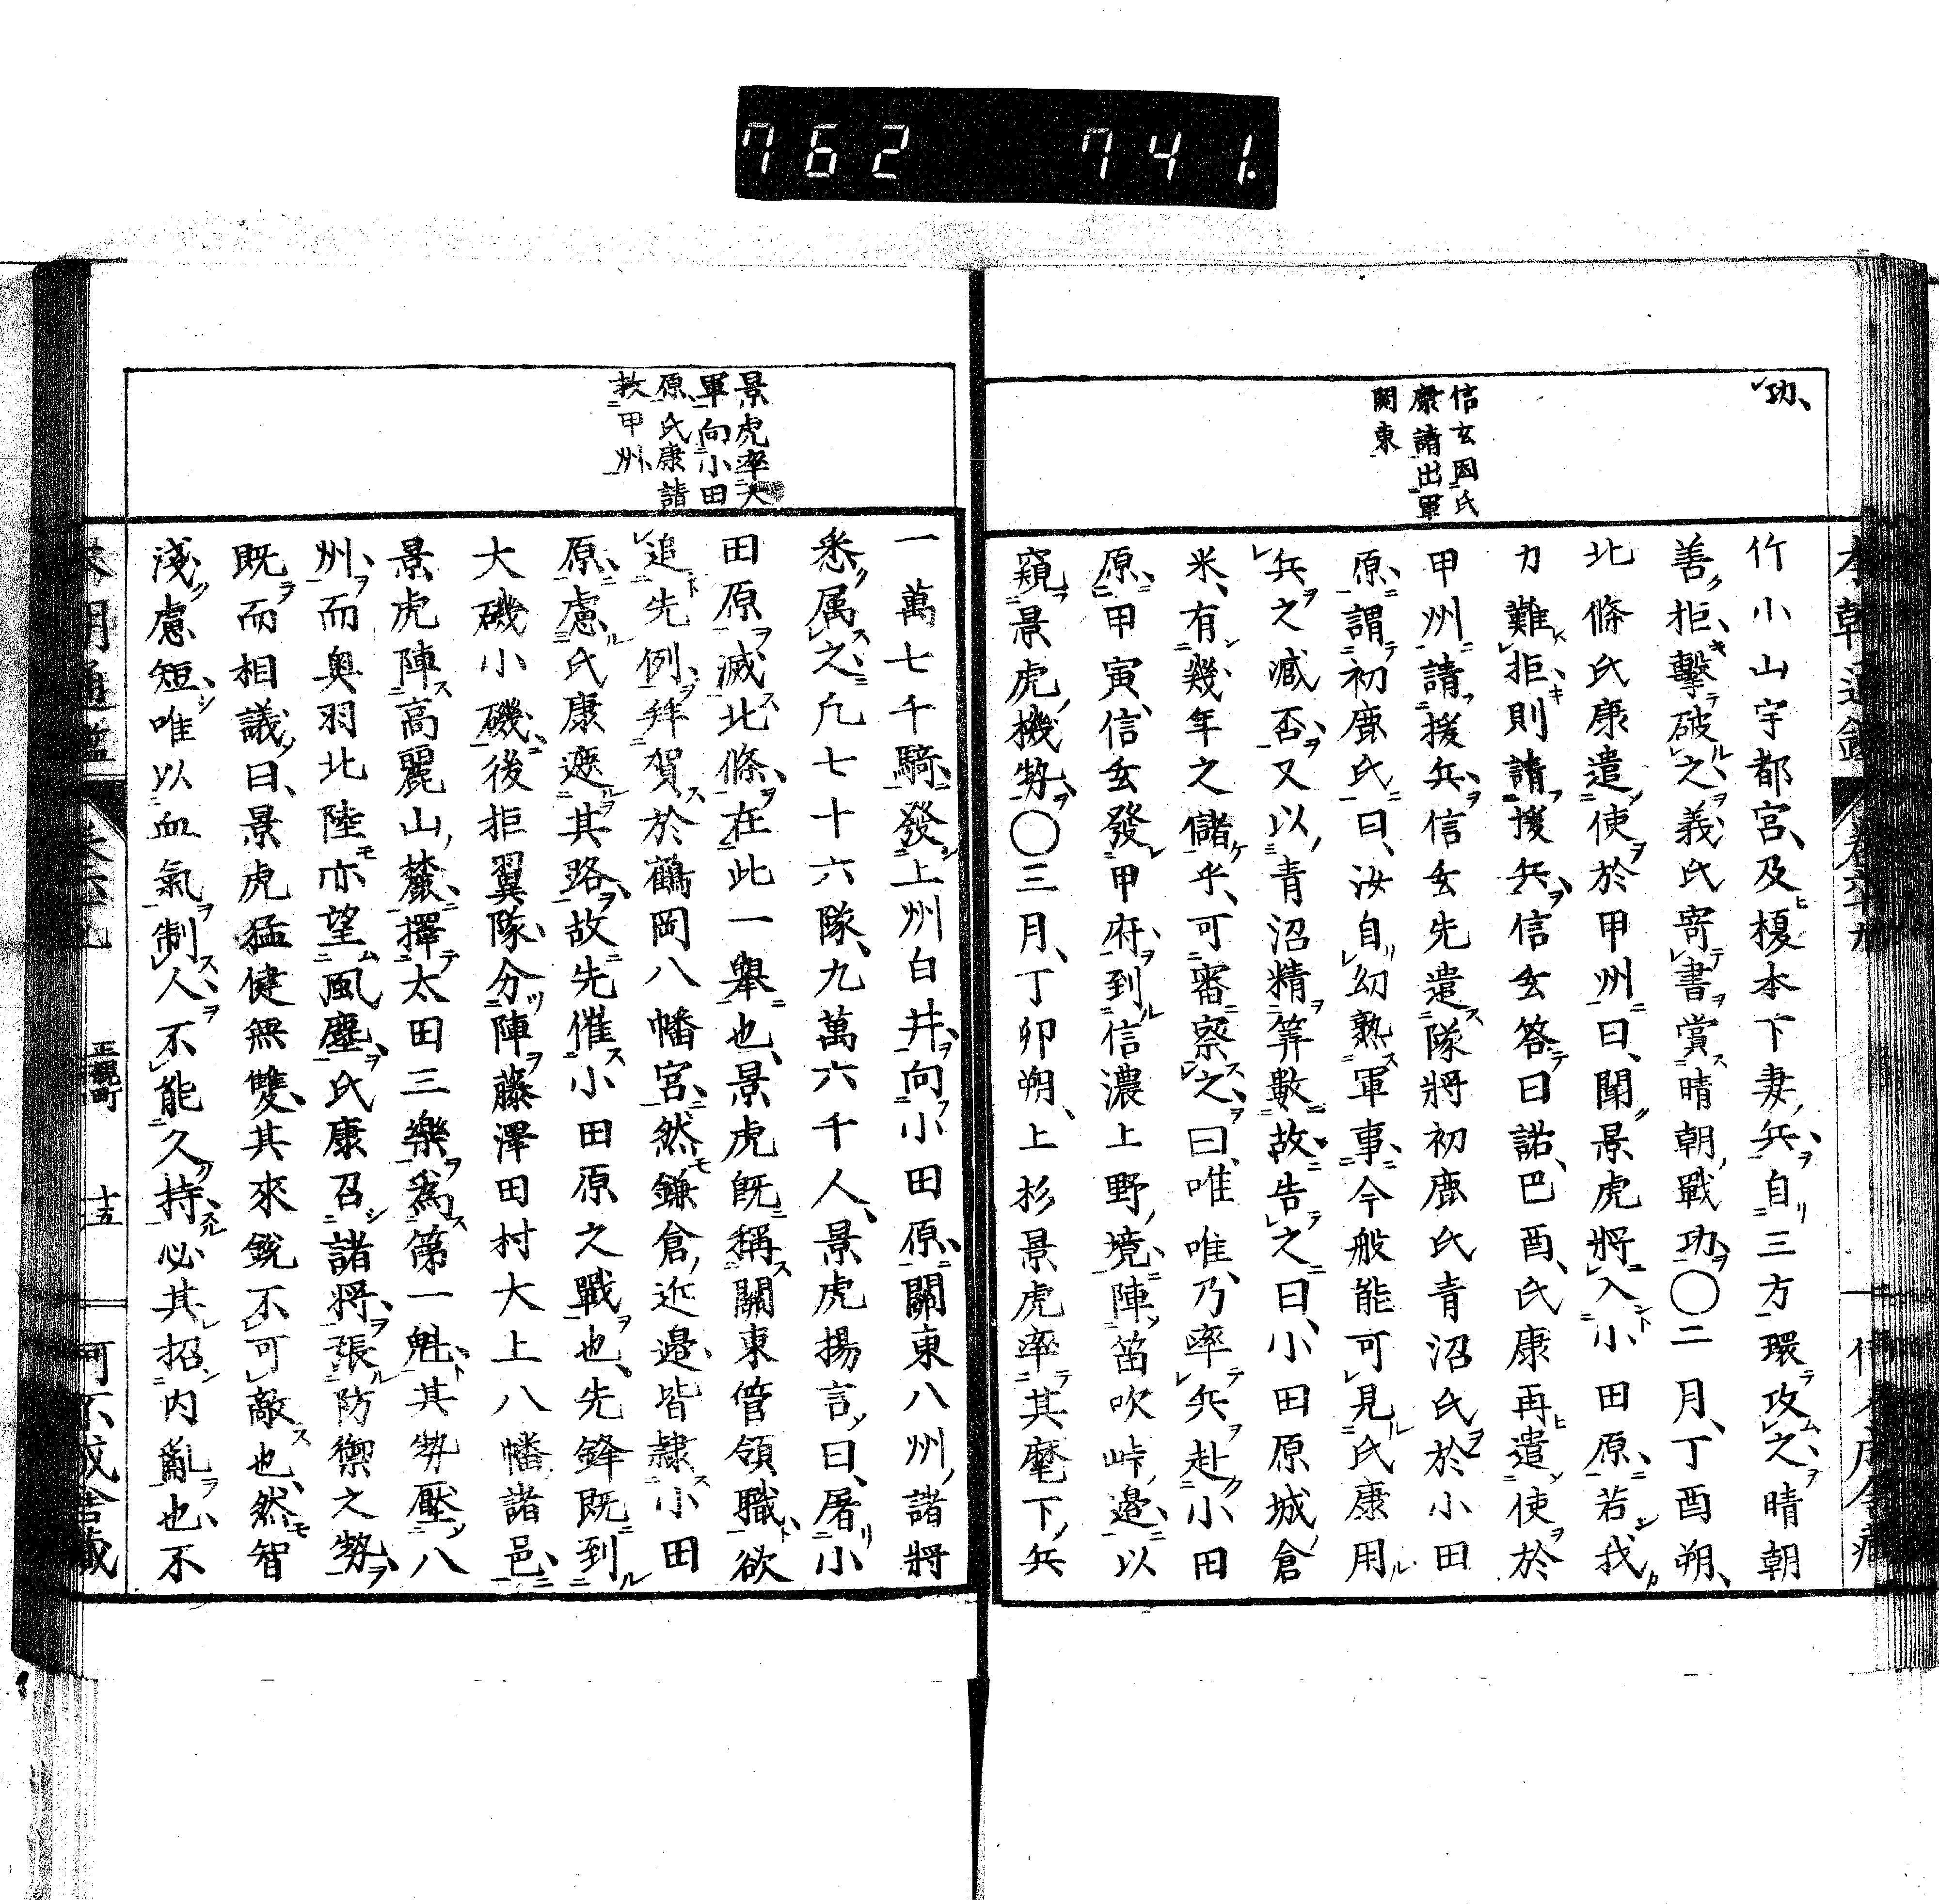 762 741.
功、
信玄因氏
康請出軍
関東
竹小山宇都宮、及榎本下妻兵、自三方環攻之、晴朝
善拒擊破之、義氏寄書賞晴朝戰功、〇二月、丁酉朔、
北條氏康遣使於甲州曰、聞景虎將入小田原、若我
力難拒、則請援兵、信玄答曰諾、巳酉、氏康再遣使於
甲州請援兵、信玄先遣隊將初鹿氏青沼氏於小田
原、謂初鹿氏曰、汝自幼熟軍事、今般能可見氏康用
兵之臧否、又以青沼精筭數、故告之曰、小田原城倉
米、有幾年之儲乎、可審察之、曰唯唯、乃率兵赴小田
原、甲寅、信玄發甲府、到信濃上野境、陣笛吹峠邉、以
窺景虎機勢、〇三月、丁卯朔、上杉景虎率其麾下兵
景虎率大
軍向小田
原、氏康請
救甲州、
一萬七千騎、發上州白井、向小田原、關東八州諸將
悉属之、凡七十六隊、九萬六千人、景虎揚言曰、屠小
田原、滅北條、在此一舉也、景虎既稱關東管領職、欲
追先例、拜賀於鶴岡八幡宮、然鎌倉近邉、皆隷小田
原、慮氏康遮其路、故先催小田原之戰也、先鋒既到
大磯小磯、後拒翼隊、分陣藤澤田村大上八幡諸邑、
景虎陣高麗山麓、擇太田三樂爲第一魁、其勢壓八
州、而奥羽北陸亦望風塵、氏康召諸將、張防禦之勢、
既而相議曰、景虎猛健無雙、其來銳不可敵也、然智
淺慮短、唯以血氣制人、不能久持、必其招内亂也、不
正親町 十五